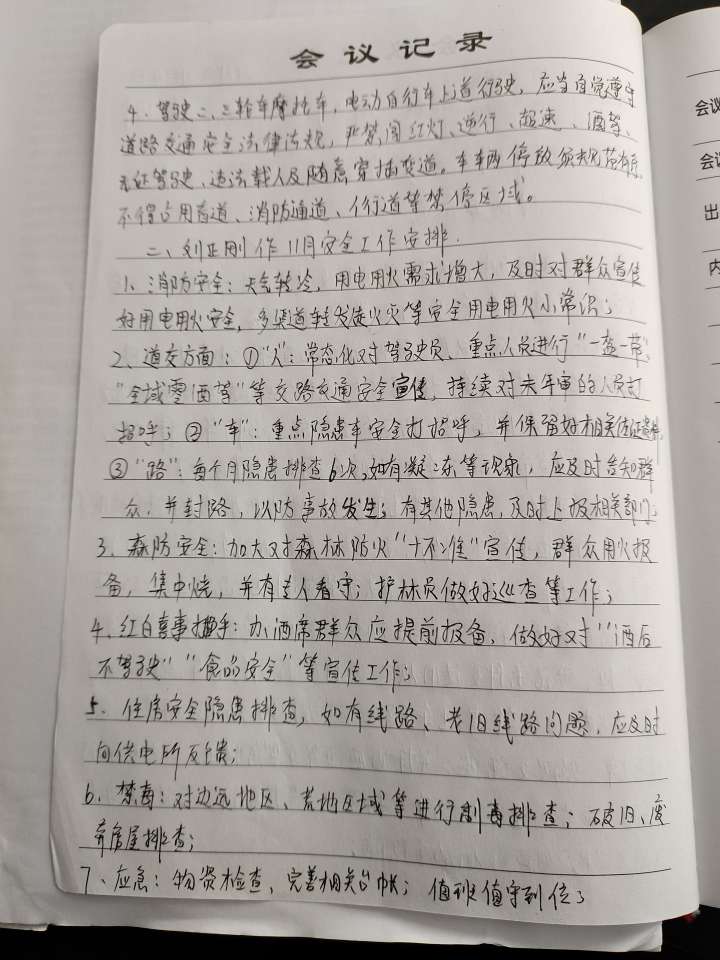 会议记录
4、驾驶二、三轮车摩托车,电动自行车上道行驶,应当自觉遵守
道路交通安全法律法规,严禁闯红灯、逆行、超速、酒驾、
无证驾驶、违法载人及随意穿插变道。车辆停放须规范有序,
不得占用盲道、消防通道、人行道等禁停区域。
二、刘正刚作11月安全工作安排.
1、消防安全:天气转冷,用电用火需求增大,及时对群众宣传
好用电用火安全,多渠道转发徒火灾等安全用电用火小常识;
2、道交方面:①“人”:常态化对驾驶员、重点人员进行“一盔一带”,
“全域零酒驾”等交路交通安全宣传,持续对未年审的人员打
招呼;②“车”:重点隐患车安全打招呼,并保留好相关佐证资料,
③“路”:每个月隐患排查6次,如有凝冻等现象,应及时告知群
众,并封路,以防事故发生;有其他隐患,及时上报相关部门;
3、森防安全:加大对森林防火“十不准”宣传,群众用火报
备,集中烧,并有专人看守;护林员做好巡查等工作;
4、红白喜事摊手:办酒席群众应提前报备,做好对“酒后
不驾驶”“食品安全”等宣传工作;
5、住房安全隐患排查,如有线路、老旧线路问题,应及时
向供电所反馈;
6、禁毒:对边远地区、荒地区域等进行制毒排查;破旧、废
弃房屋排查;
7、应急:物资检查、完善相关台帐;值班值守到位;
会议
会议
出
内